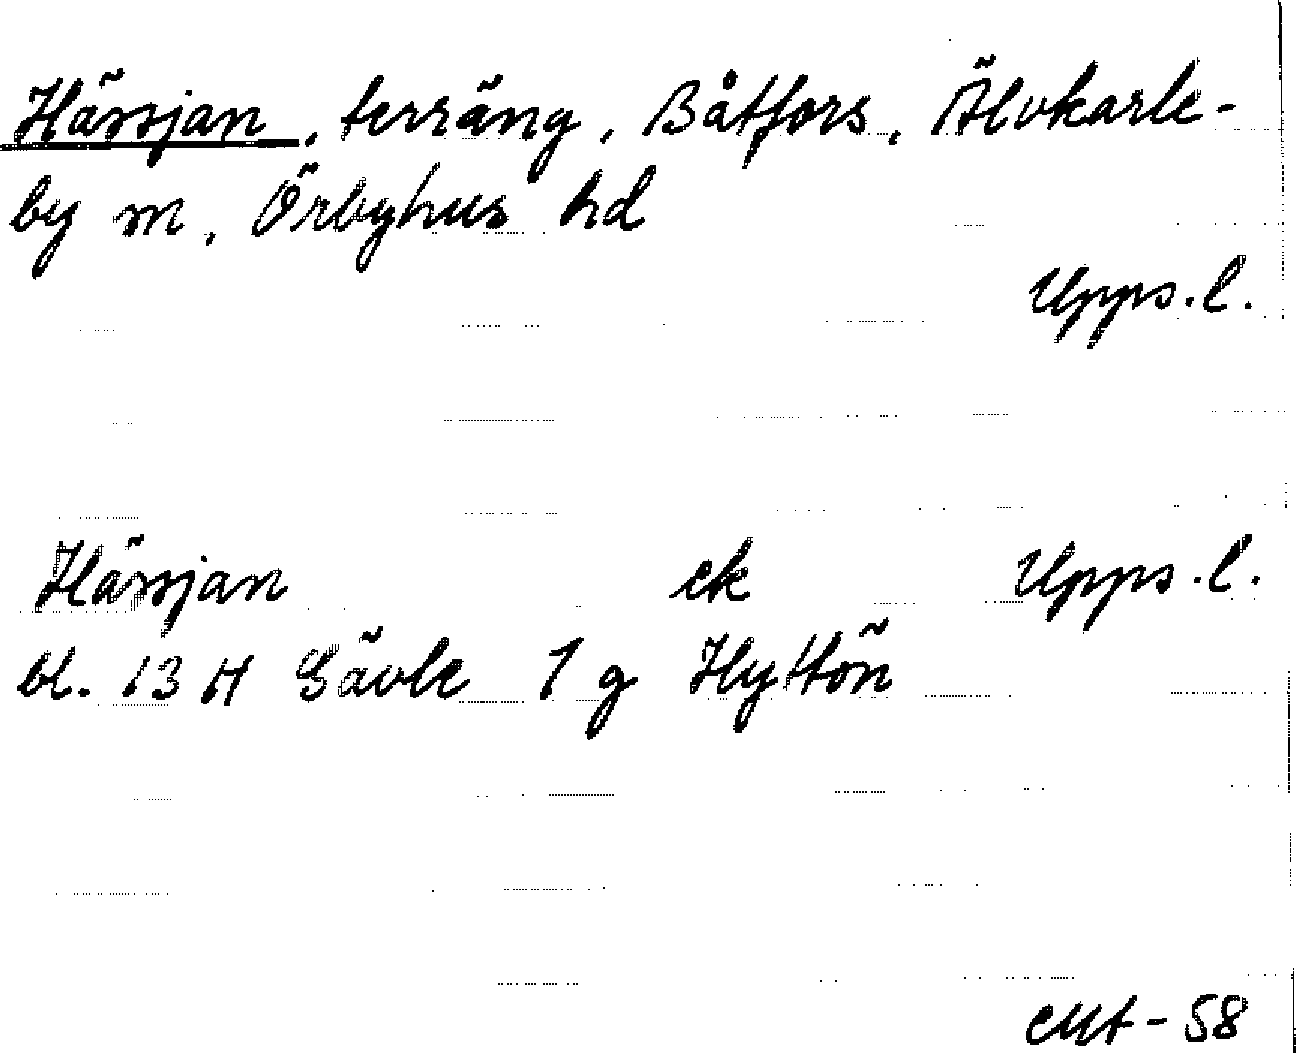 Hässjan, terräng, Båtfors, Älvkarle-
by sn, Örbyhus hd
Upps. l.
Hässjan ek Upps. l.
bl. 13 H Gävle 1 g Hyttön
-58